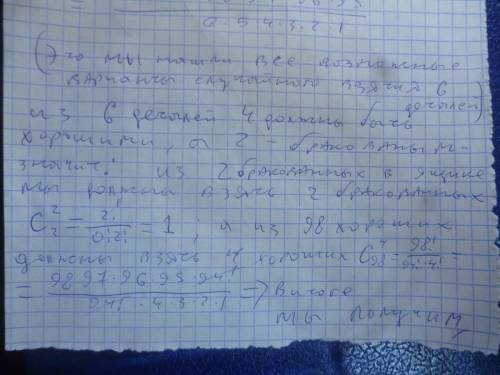 6·5·4·3·2·1
(Это мы нашли все возможные
варианты случайного взятия 6
деталей)
из 6 деталей 4 должны быть
хорошими, а 2 - бракованы
значит: из 2 бракованных в ящике
мы должны взять 2 бракованных
C₂² = 2!/0!2! = 1 ; а из 98 хороших
должны взять 4 хороших C₉₈⁴ = 98!/94!·4! =
= 98·97·96·95·94!/94!·4·3·2·1 => В итоге
мы получим